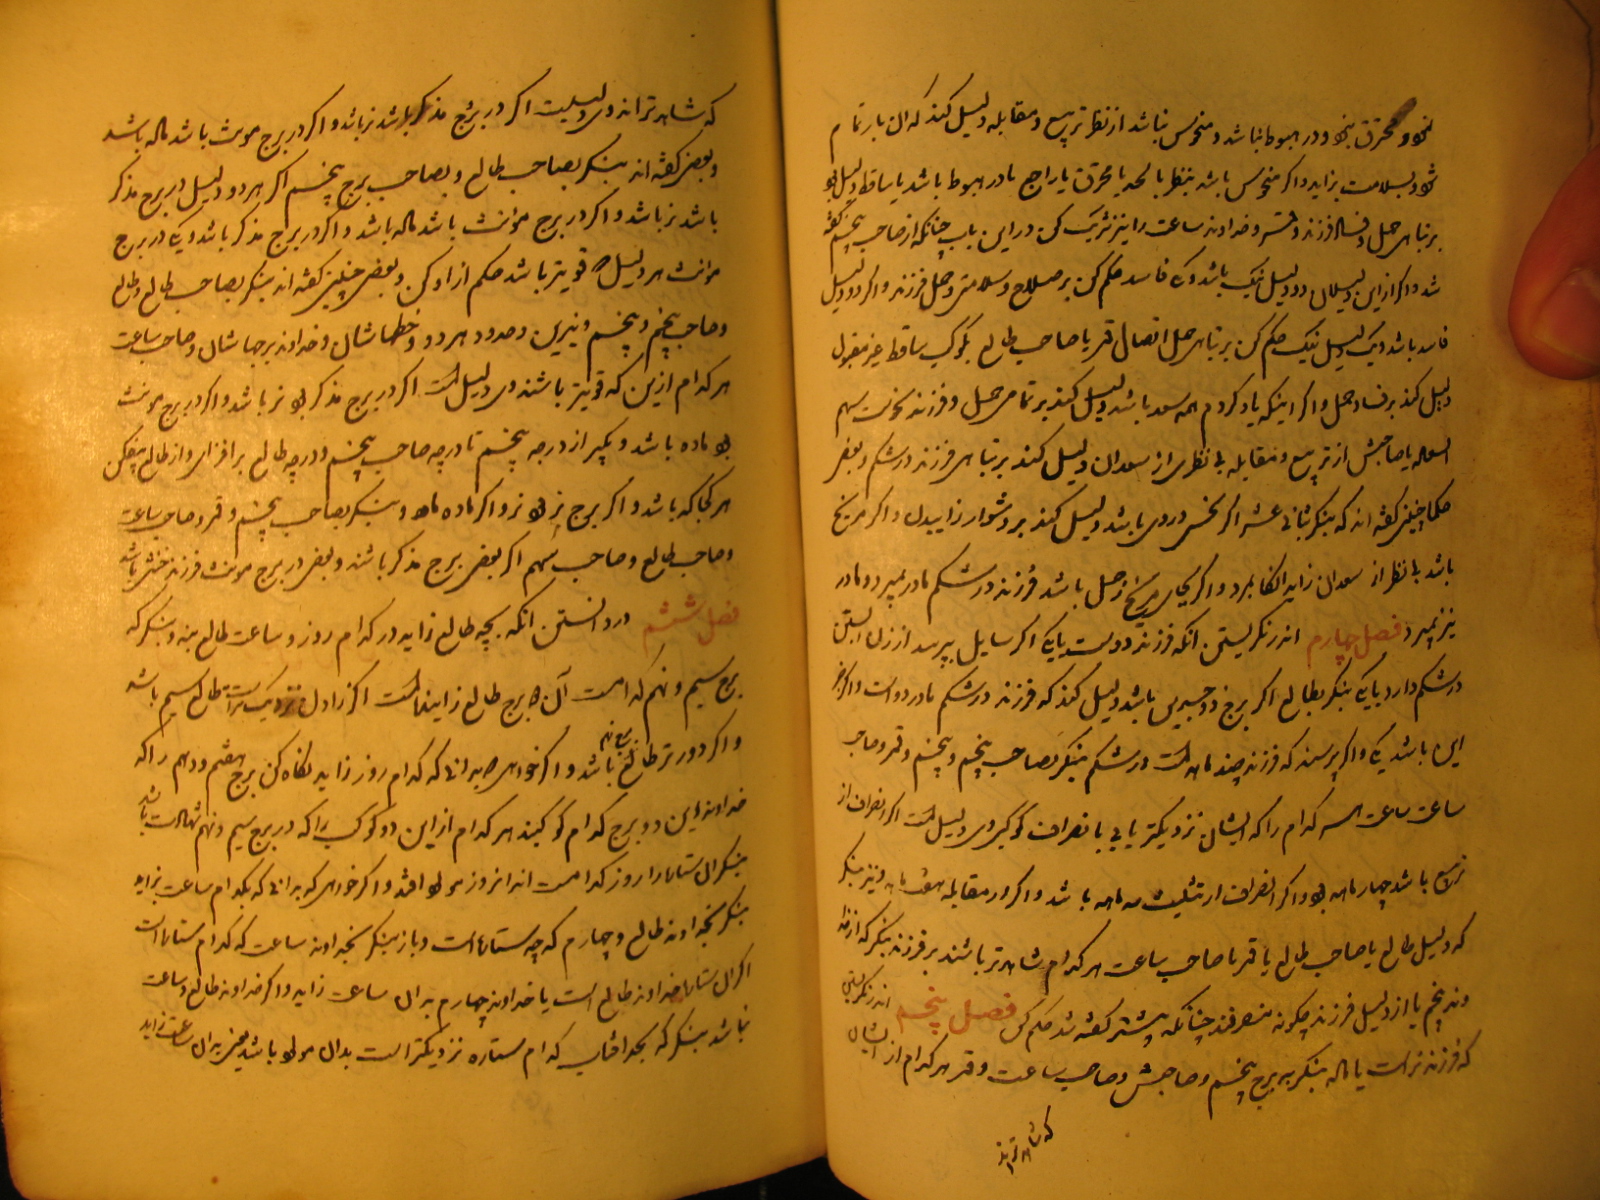 نبود و محترق نبود و در هبوط نباشد و منحوس نباشد از نظر تربیع و مقابله دلیل کند که آن بار تمام
شود و بسلامت بزاید و اگر منحوس باشد بنظر یا محترق یا راجع یا در هبوط باشد یا ساقط دلیل بود
بر تباهی حمل و فساد فرزند و قمر و خداوند ساعت را نیز شریک کن در این باب چنانکه از صاحب پنجم گفته
شد و اگر از این دلیلان دو دلیل نیک باشد و یکی فاسد حکم کن بر صلاح و سلامتی حمل و فرزند و اگر دو دلیل
فاسد باشد و یک دلیل نیک حکم کن بر تباهی حمل اتصال قمر یا صاحب طالع بکوکب ساقط غیر مقبول
دلیل کند بر فساد حمل و اگر اینکه یاد کردم همه سعد باشد دلیل کند بر تمامی حمل و فرزند نحوست سهم
السعاده یا صاحبش از تربیع و مقابله بی نظری از سعدان دلیل کند بر تباهی فرزند در شکم و بعضی
حکما چنین گفته اند که بنگر بثانی عشر اگر نحس در وی باشد دلیل کند بر دشوار زاییدن و اگر مریخ
باشد با نظر از سعدان زاید آنگاه بمرد و اگر بجای مریخ زحل باشد فرزند در شکم مادر بمیرد و مادر
نیز بمیرد فصل چهارم اندر نگریستن آنکه فرزند دو است یا یکی اگر سایل بپرسد از زن آبستن
در شکم دارد یا یکی بنگر بطالع اگر برج ذو جسدین باشد دلیل کند که فرزند در شکم مادر دو است و اگر جز
این باشد یکی و اگر پرسند که فرزند چند ماهه است در شکم بنگر بصاحب پنجم و پنجم و قمر و صاحب
ساعت کدام را که ایشان نزدیکتر یابی بانصراف کوکبی وی دلیل است اگر انصراف از
تربیع باشد چهار ماهه بود و اگر انصراف از تثلیث سه ماهه باشد و اگر از مقابله هفت ماهه و نیز بنگر
که دلیل طالع یا صاحب طالع یا قمر یا صاحب ساعت هر کدام شاهدتر باشند بر فرزند بنگر که از خدا
وند پنجم یا از دلیل فرزند چگونه منصرفند چنانکه پیشتر گفته شد حکم کن فصل پنجم اندر نگریستن
که فرزند نر است یا ماده بنگر ببرج پنجم و صاحبش و صاحب ساعت و قمر هر کدام از ایشان
که شاهدترند
که شاهدترند وی دلیلست اگر در برج مذکر باشد نر باشد و اگر در برج مونث باشد ماده باشد
و بعضی گفته اند بنگر بصاحب طالع و بصاحب برج پنجم اگر هر دو دلیل در برج مذکر
باشد نر باشد و اگر در برج مونث باشد ماده باشد و اگر در برج مذکر باشد و یکی در برج
مونث هر دلیل که قویتر باشد حکم از او کن و بعضی چنین گفته اند بنگر بصاحب طالع و طالع
و صاحب پنجم و پنجم و نیرین و حدود هر دو و خطهاشان و خداوند برجهاشان و صاحب ساعت
هر کدام ازین که قویتر باشند وی دلیل است اگر در برج مذکر بود نر باشد و اگر در برج مونث
بود ماده باشد و بگیر از درجه پنجم تا درجه صاحب پنجم و درجه طالع بر افزای و از طالع بیفکن
هر کجا که باشد و اگر برج نر بود نر و اگر ماده ماده و بنگر بصاحب پنجم و قمر و صاحب ساعت
و صاحب طالع و صاحب سهم اگر بعضی ببرج مذکر باشند و بعضی در برج مونث فرزند خنثی باشد
فصل ششم در دانستن آنکه بچه طالع زاید در کدام روز و ساعت طالع بنه و بنگر که
برج سیم و نهم کدامست آن برج طالع زاینده است اگر زاول نزدیکتر است طالع سیم باشد
و اگر دورتر طالع برج نهم باشد و اگر خواهی که بدانی که کدام روز زاید نگاه کن برج هفتم و دهم را که
خداوند این دو برج کدام کوکبند هر کدام از این دو کوکب را که در برج سیم و نهم شهادت باشد
بنگر آن ستاره را روز کدامست اندر آنروز مولود افتد و اگر خواهی که بدانی که بکدام ساعت بزاید
بنگر بخداوند طالع و چهارم که چه ستاره است و باز بنگر بخداوند ساعت که کدام ستاره است
اگر آن ستاره خداوند طالع است یا خداوند چهارم بدان ساعت زاید و اگر خداوند طالع و ساعت
نباشد بنگر که بحد آفتاب کدام ستاره نزدیکتر است بدان مولود باشد یعنی بدان ساعت زاید